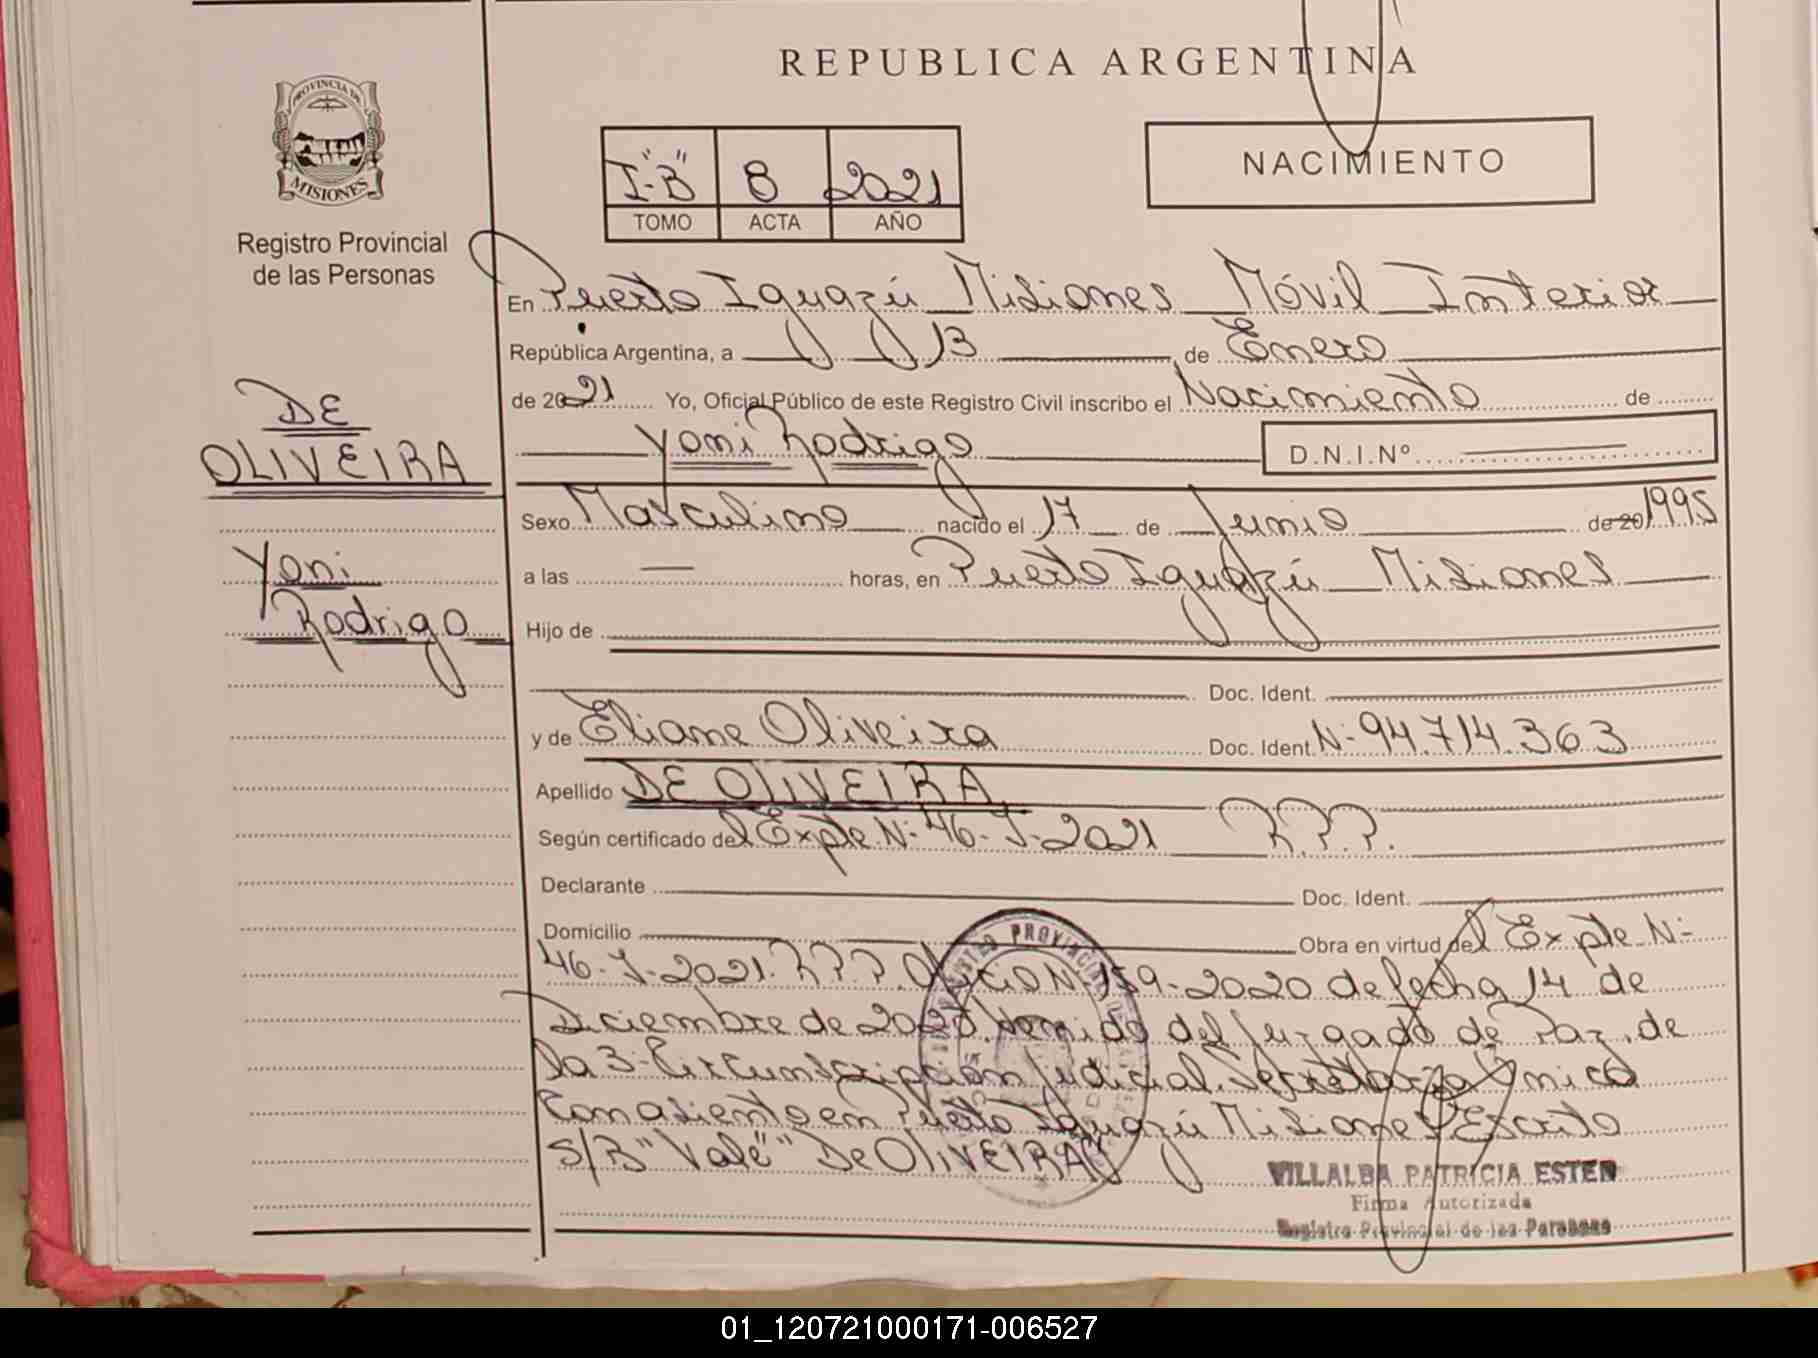 REPUBLICA ARGENTINA
PROVINCIA DE
MISIONES
Registro Provincial
de las Personas
I-"B" 8 2021
TOMO ACTA AÑO
NACIMIENTO
DE
OLIVEIRA
Yoni
Rodrigo
En Puerto Iguazú Misiones Móvil Interior
República Argentina, a 13 de Enero
de 2021 Yo, Oficial Público de este Registro Civil inscribo el Nacimiento de
Yoni Rodrigo D.N.I.Nº
Sexo Masculino nacido el 17 de Junio de 20 1995
a las — horas, en Puerto Iguazú Misiones
Hijo de
Doc. Ident.
y de Eliane Oliveira Doc. Ident. N- 94.714.363
Apellido DE OLIVEIRA
Según certificado del Expte. N- 46-J-2021 R.P.P.
Declarante Doc. Ident.
Domicilio Obra en virtud del Expte N-
46-J-2021. R.P.P. Oficio N- 159-2020 de fecha 14 de
Diciembre de 2020, venido del Juzgado de Paz, de
la 3- Circunscripción Judicial. Secretaría Única
con asiento en Puerto Iguazú Misiones Escrito
S/B "Vale" De OLIVEIRA
REGISTRO PROVINCIAL DE
VILLALBA PATRICIA ESTER
Firma Autorizada
Registro Provincial de las Personas
01_120721000171-006527